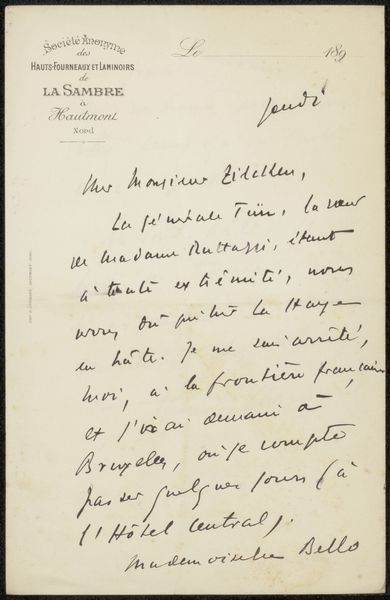 Société Anonyme
des
HAUTS-FOURNEAUX ET LAMINOIRS
de
LA SAMBRE
à
Hautmont
NORD
Le 189
jeudi
Monsieur Zilcken,
La générale Türr, la sœur
de Madame Rattazzi, étant
à toute extrémité, nous
avons dû quitter La Haye
en hâte. Je me suis arrêté,
moi, à la frontière française
et j'irai demain à
Bruxelles, où je compte
passer quelques jours (à
l'Hôtel Central).
Mademoiselle Bello